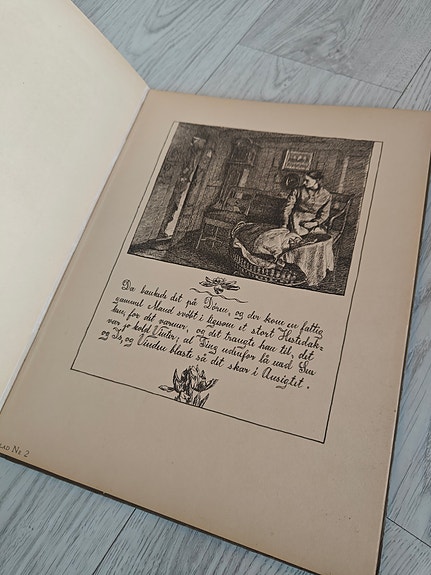 Da bankede det på Dören, og der kom en fattig
gammel Mand svöbt i ligesom et stort Hestedæk-
ken, for det varmer, og det trængte han til, det
var jo kold Vinter; al Ting udenfor lå med Sne
og Is, og Vinden blæste så det skar i Ansigtet.
LAD Nº 2